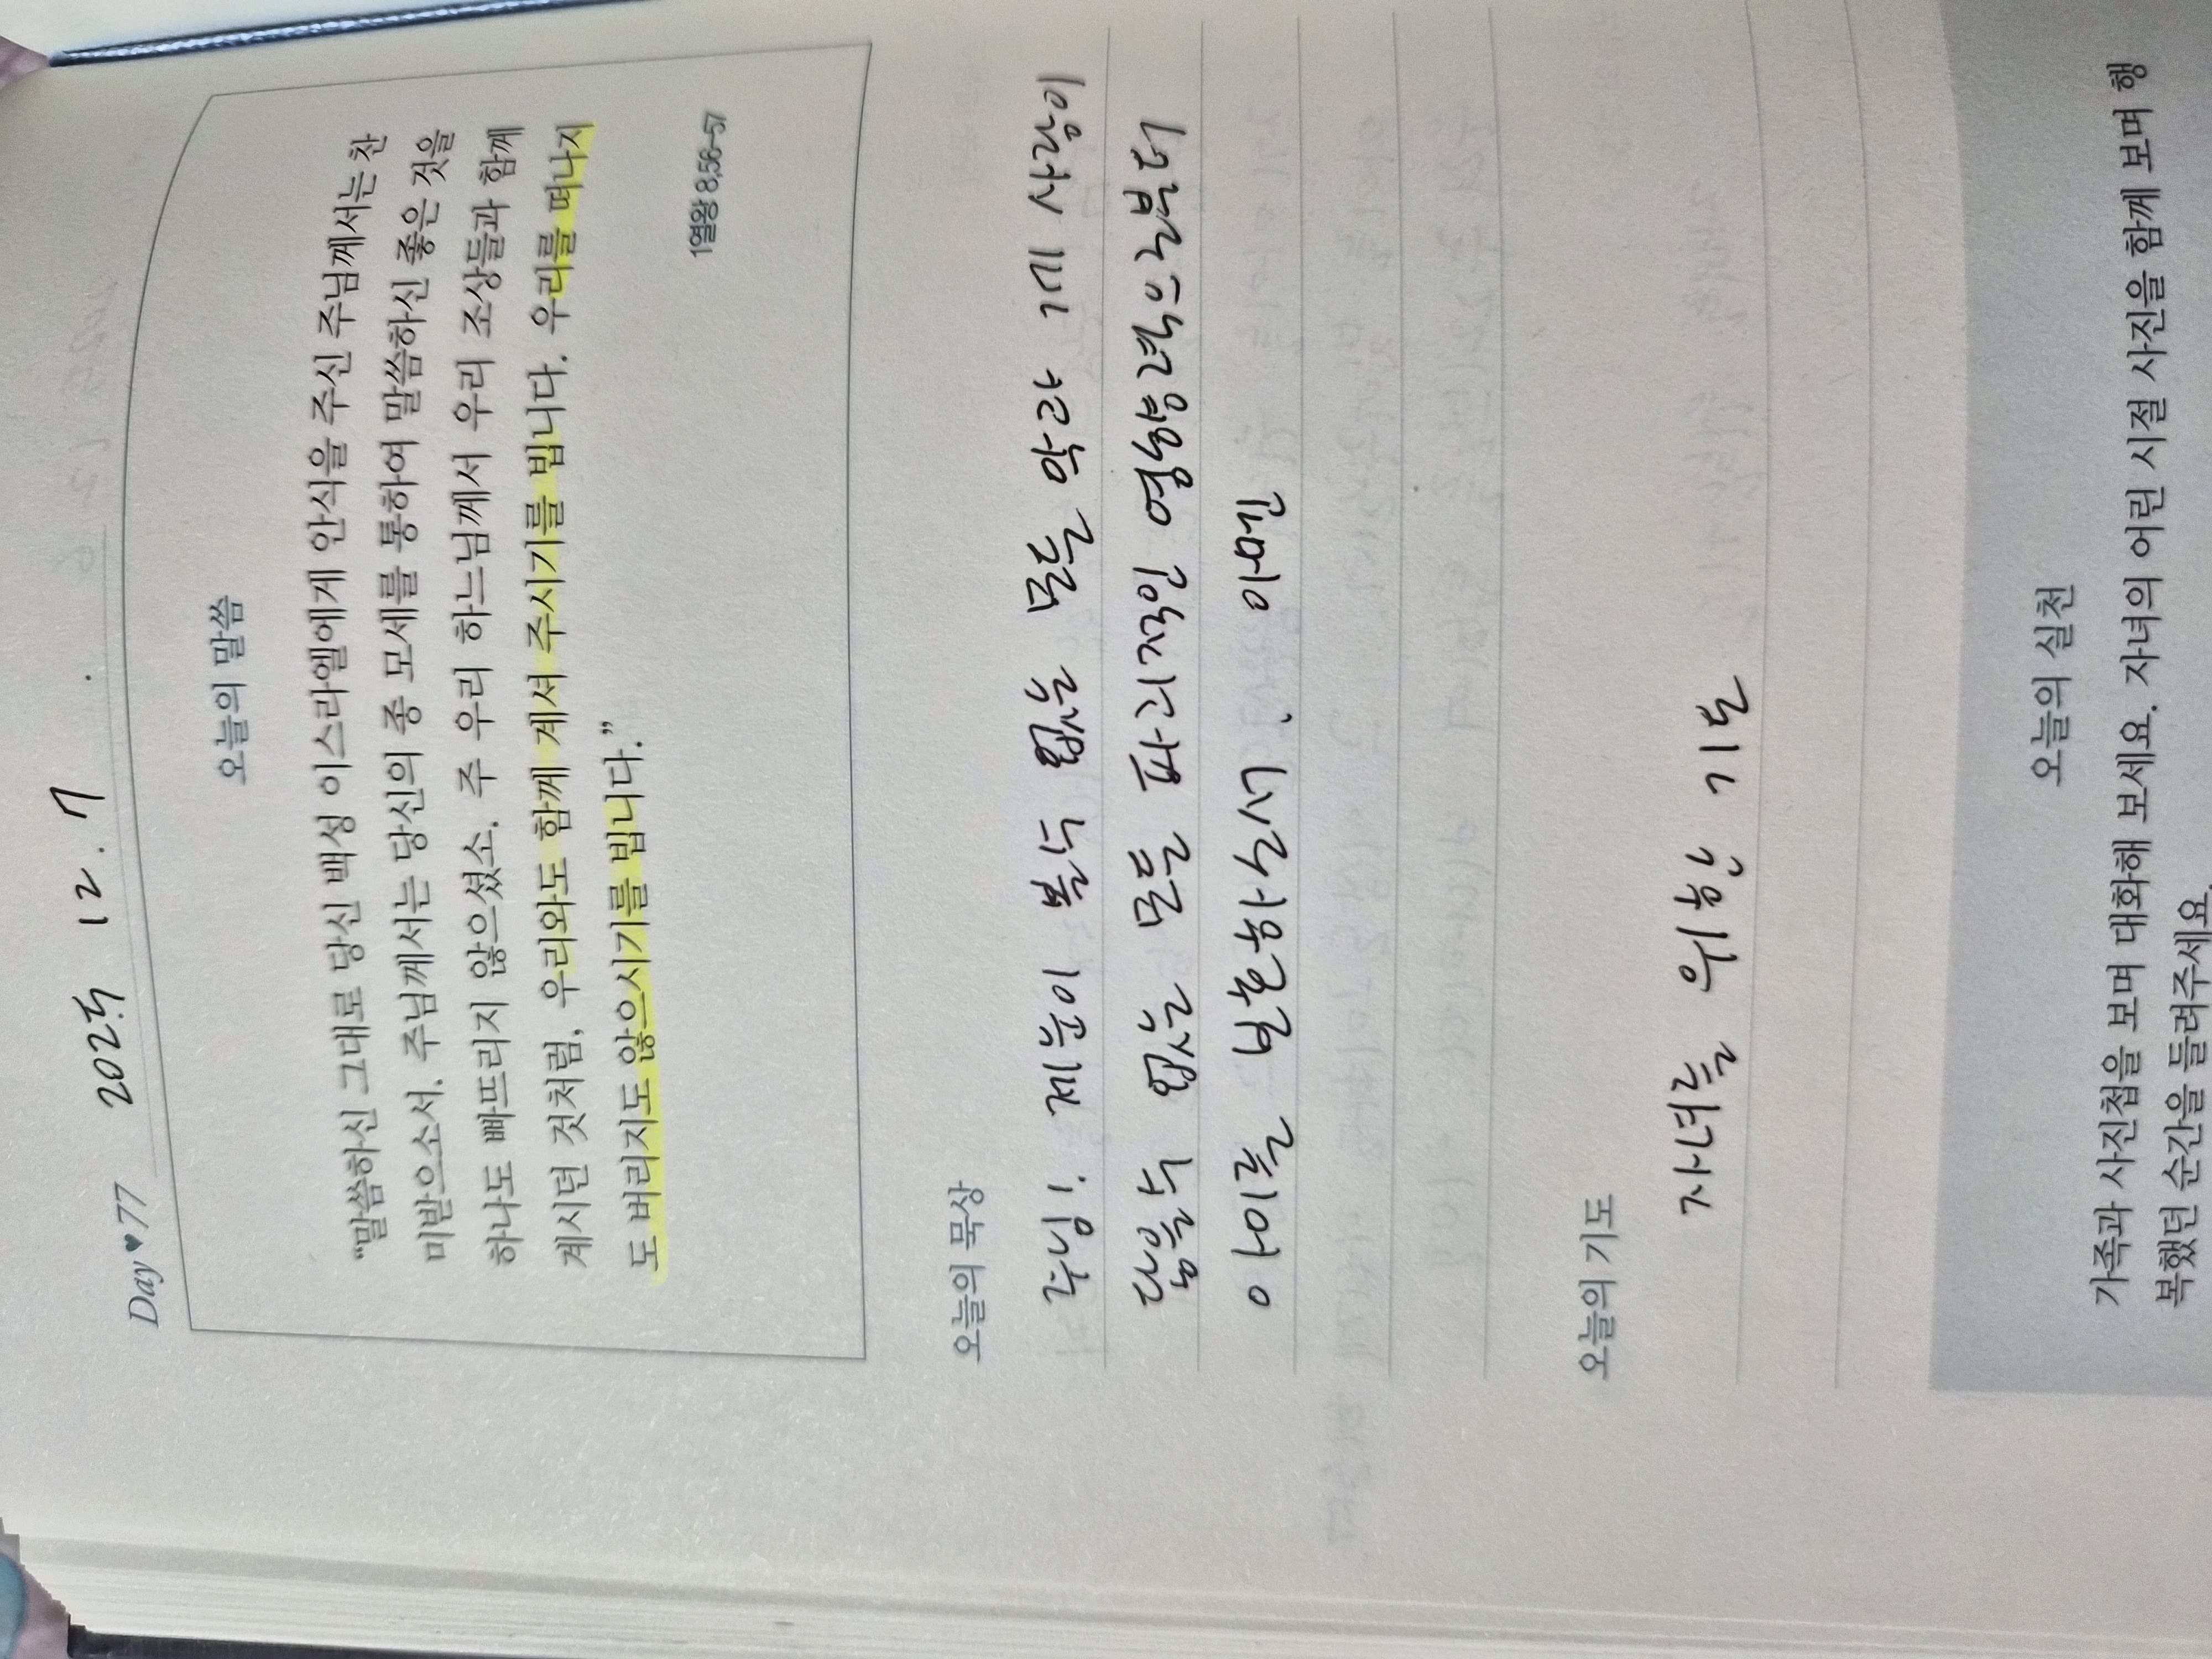 2025 12. 7
Day♥77
오늘의 말씀
“말씀하신 그대로 당신 백성 이스라엘에게 안식을 주신 주님께서는 찬
미받으소서. 주님께서는 당신의 종 모세를 통하여 말씀하신 좋은 것을
하나도 빠뜨리지 않으셨소. 주 우리 하느님께서 우리 조상들과 함께
계시던 것처럼, 우리와도 함께 계셔 주시기를 빕니다. 우리를 떠나지
도 버리지도 않으시기를 빕니다.”
1열왕 8,56-57
오늘의 묵상
주님! 제눈이 볼수 없는 모든 악과 제 사랑이
닿을수 없는 모든 파괴적인 영향력으로부터
아이를 보호하소서. 아멘
오늘의 기도
자녀를 위한 기도
오늘의 실천
가족과 사진첩을 보며 대화해 보세요. 자녀의 어린 시절 사진을 함께 보며 행
복했던 순간을 들려주세요.